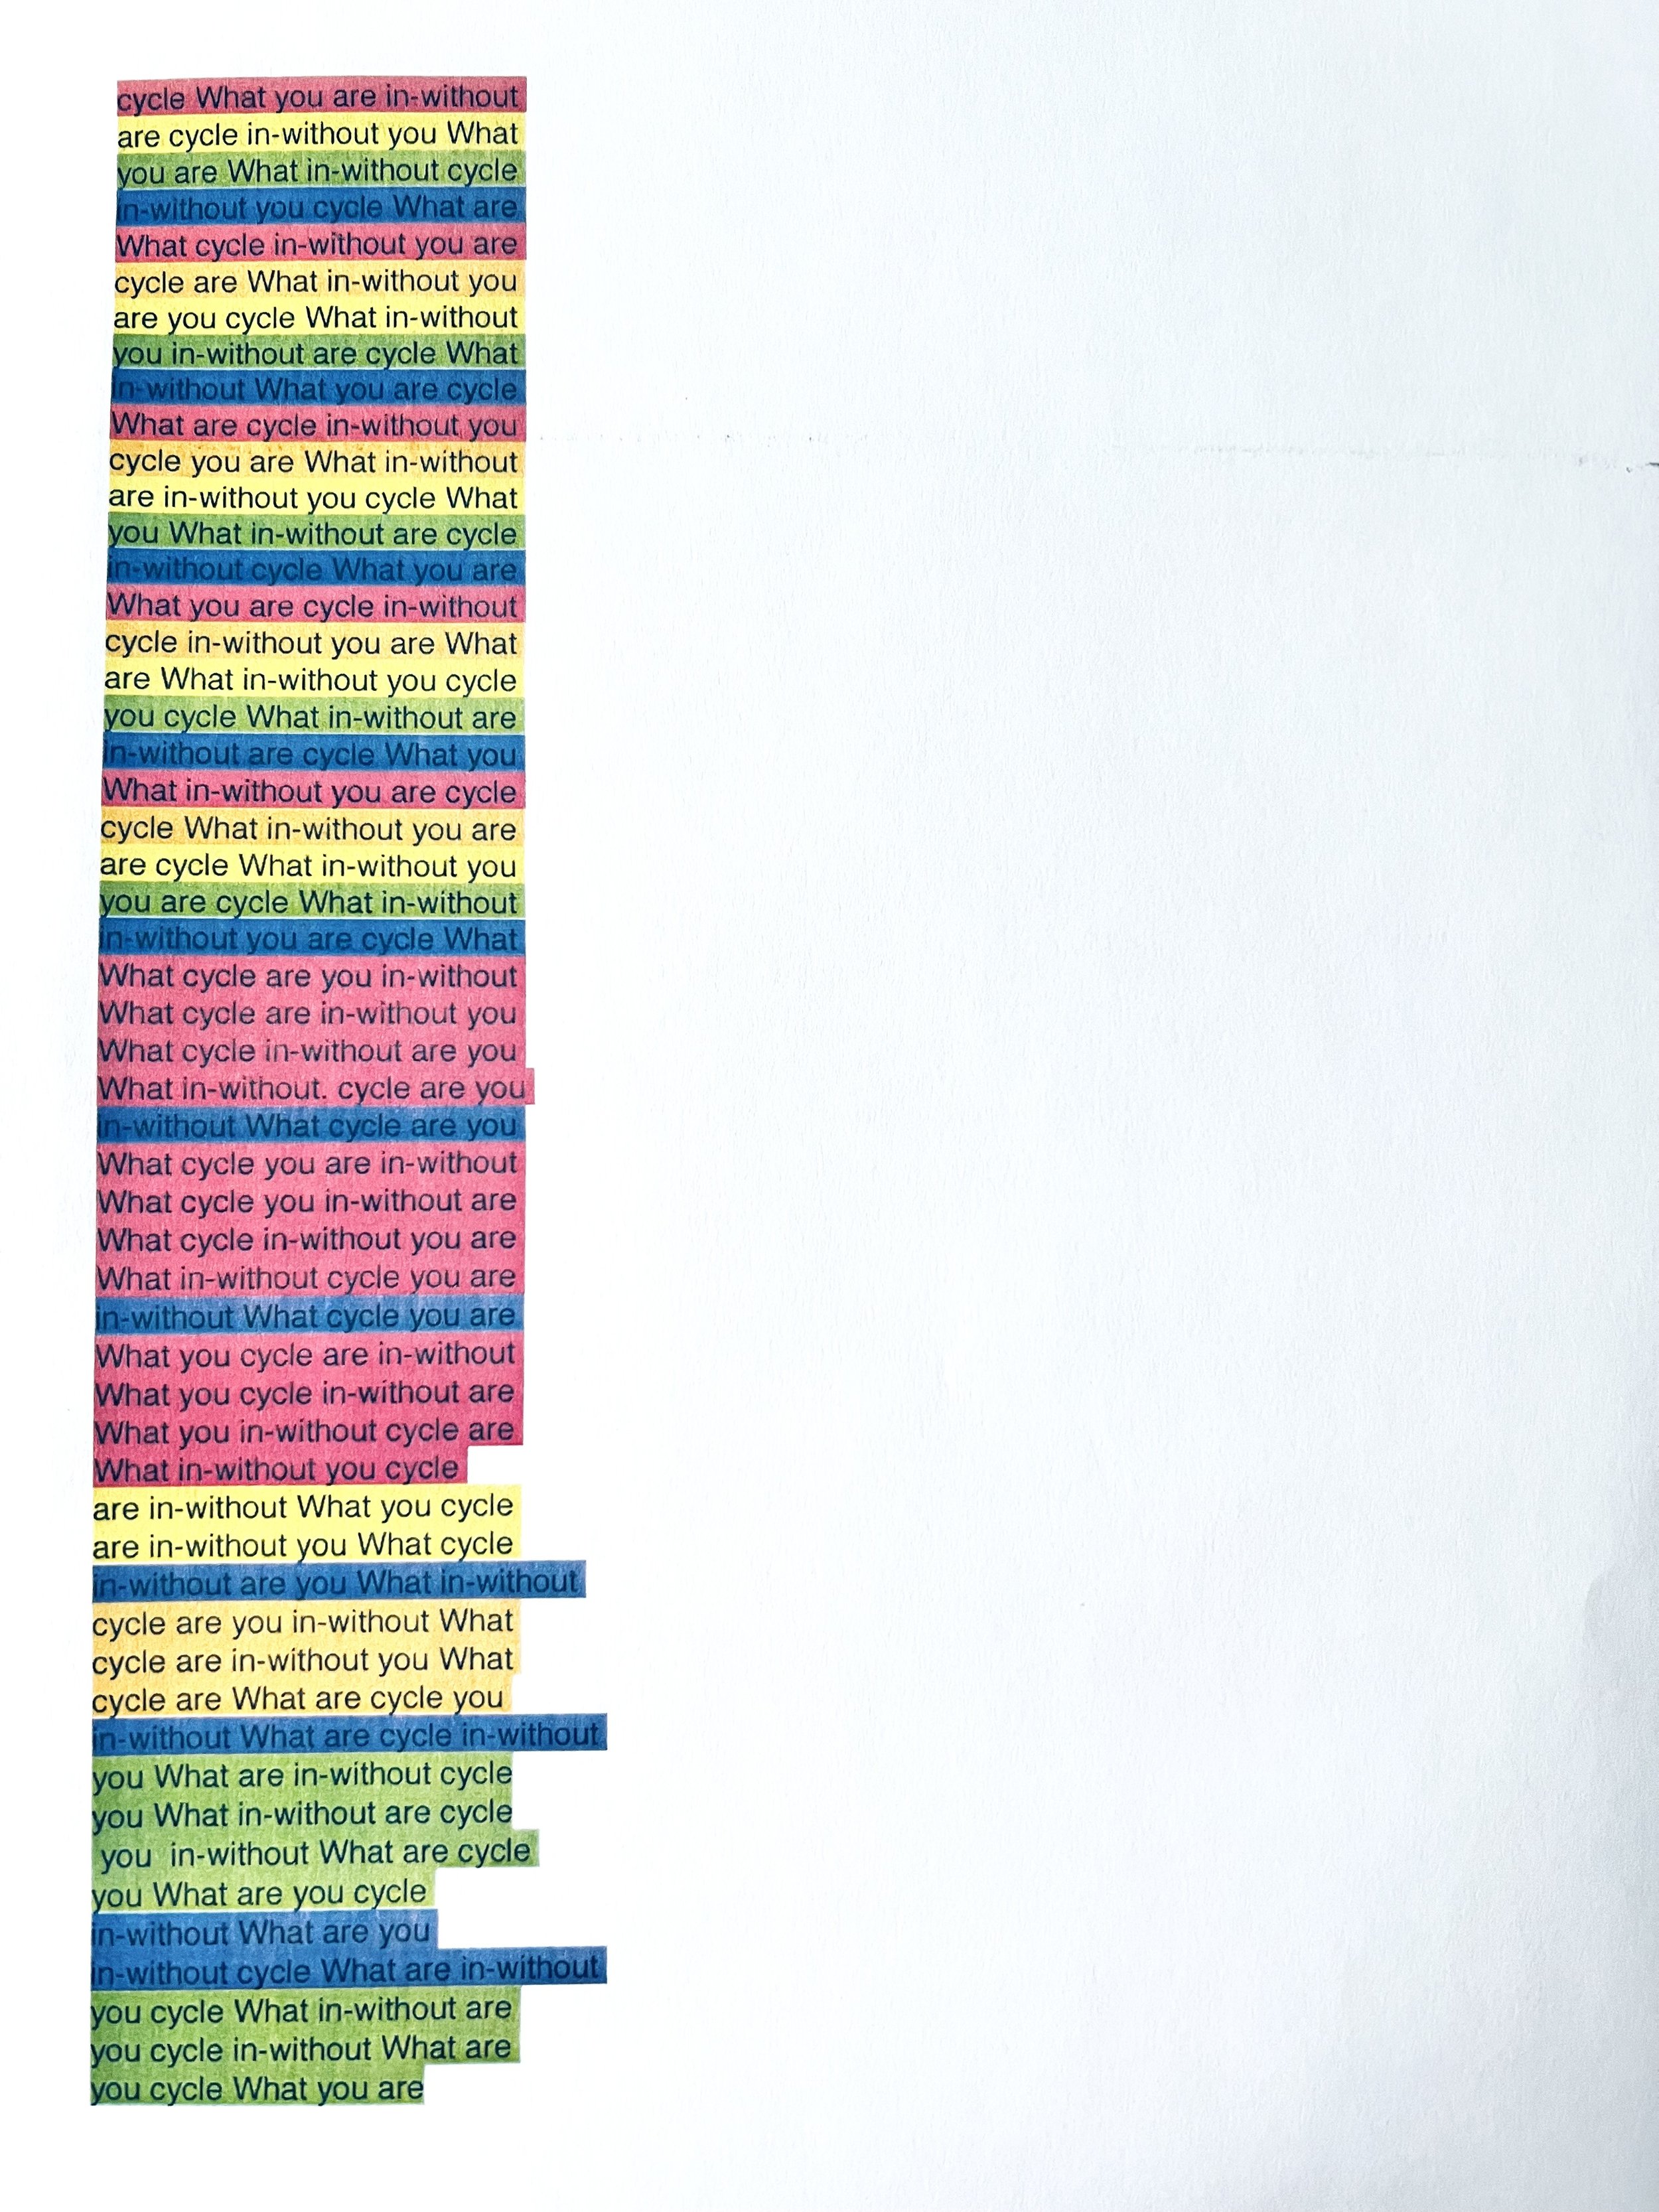 cycle What you are in-without
are cycle in-without you What
you are What in-without cycle
in-without you cycle What are
What cycle in-without you are
cycle are What in-without you
are you cycle What in-without
you in-without are cycle What
in-without What you are cycle
What are cycle in-without you
cycle you are What in-without
are in-without you cycle What
you What in-without are cycle
in-without cycle What you are
What you are cycle in-without
cycle in-without you are What
are What in-without you cycle
you cycle What in-without are
in-without are cycle What you
What in-without you are cycle
cycle What in-without you are
are cycle What in-without you
you are cycle What in-without
in-without you are cycle What
What cycle are you in-without
What cycle are in-without you
What cycle in-without are you
What in-without. cycle are you
in-without What cycle are you
What cycle you are in-without
What cycle you in-without are
What cycle in-without you are
What in-without cycle you are
in-without What cycle you are
What you cycle are in-without
What you cycle in-without are
What you in-without cycle are
What in-without you cycle
are in-without What you cycle
are in-without you What cycle
in-without are you What in-without
cycle are you in-without What
cycle are in-without you What
cycle are What are cycle you
in-without What are cycle in-without
you What are in-without cycle
you What in-without are cycle
you in-without What are cycle
you What are you cycle
in-without What are you
in-without cycle What are in-without
you cycle What in-without are
you cycle in-without What are
you cycle What you are